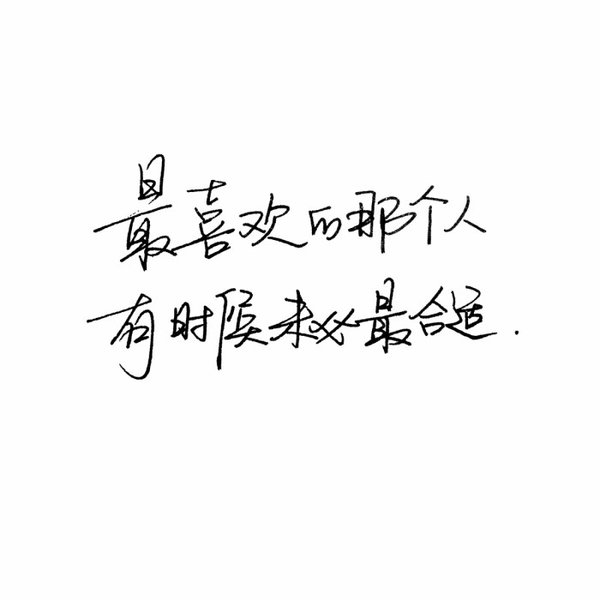 最喜欢的那个人
有时候未必最合适.